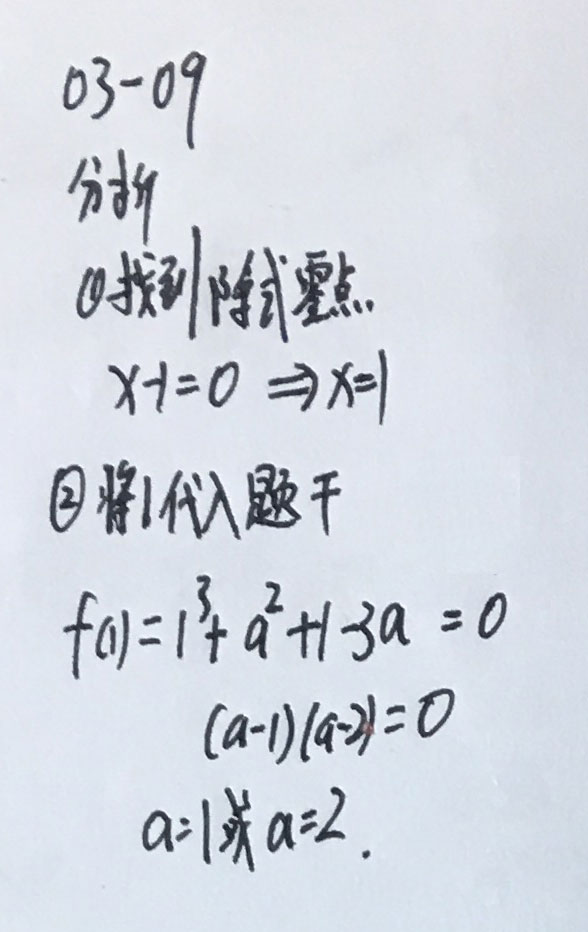 03-09
分析
①找到除式零点
x-1=0 ⇒x=1
②将1代入题干
f(1)=1³+a²+1-3a=0
(a-1)(a-2)=0
a=1或a=2.